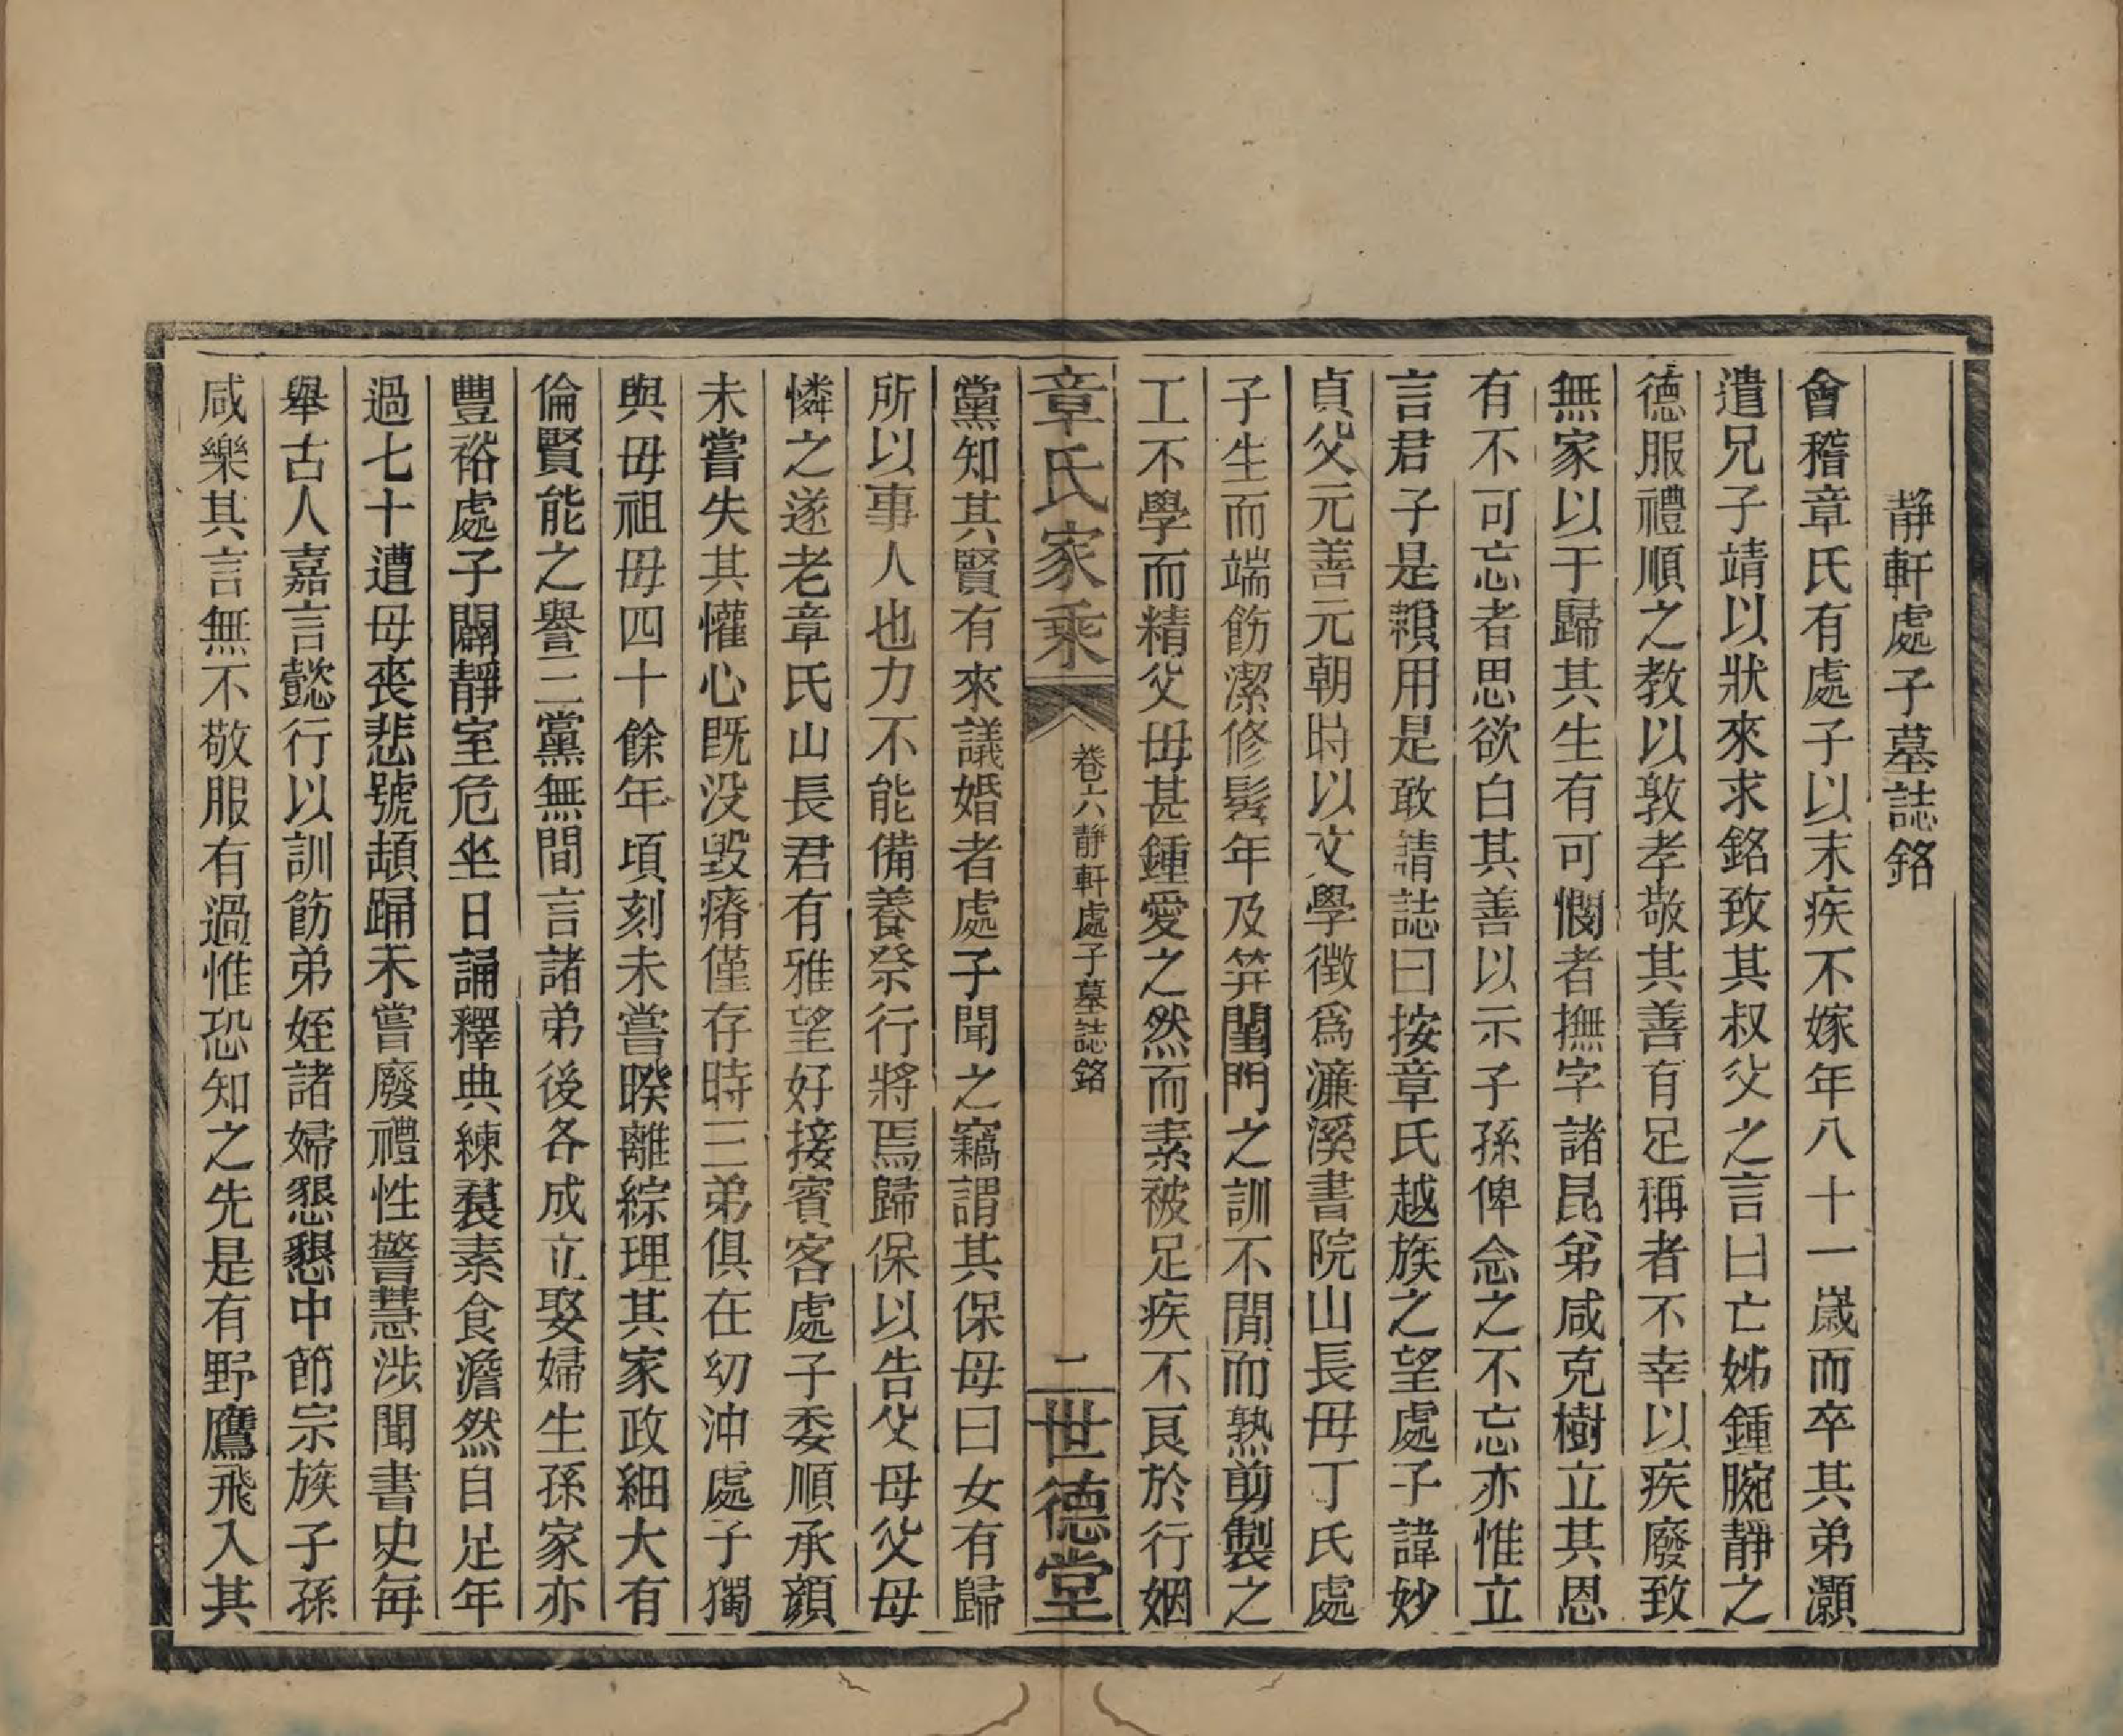 靜軒處子墓誌銘
會稽章氏有處子以末疾不嫁年八十一歲而卒其弟灝
遣兄子靖以狀來求銘致其叔父之言曰亡姊鍾腕靜之
德服禮順之教以敦孝敬其善有足稱者不幸以疾廢致
無家以于歸其生有可憫者撫字諸昆弟咸克樹立其恩
有不可忘者思欲白其善以示子孫俾念之不忘亦惟立
言君子是賴用是敢請誌曰按章氏越族之望處子諱妙
貞父元善元朝時以文學徵爲濂溪書院山長毋丁氏處
子生而端飭潔修髫年及笄閨門之訓不閒而熟剪製之
工不學而精父毋甚鍾愛之然而素被足疾不良於行姻
章氏家乘
卷六靜軒處子墓誌銘
二
世德堂
黨知其賢有來議婚者處子聞之竊謂其保母曰女有歸
所以事人也力不能備養祭行將焉歸保以告父母父母
憐之遂老章氏山長君有雅望好接賓客處子委順承顔
未嘗失其懽心既没毀瘠僅存時三弟俱在幼沖處子獨
與毋祖毋四十餘年頃刻未嘗暌離綜理其家政細大有
倫賢能之譽三黨無間言諸弟後各成立娶婦生孫家亦
豐裕處子闢靜室危坐日誦釋典練裠素食澹然自足年
過七十遭毋喪悲號頓踊未嘗廢禮性警慧涉聞書史每
舉古人嘉言懿行以訓飭弟姪諸婦懇懇中節宗族子孫
咸樂其言無不敬服有過惟恐知之先是有野鷹飛入其